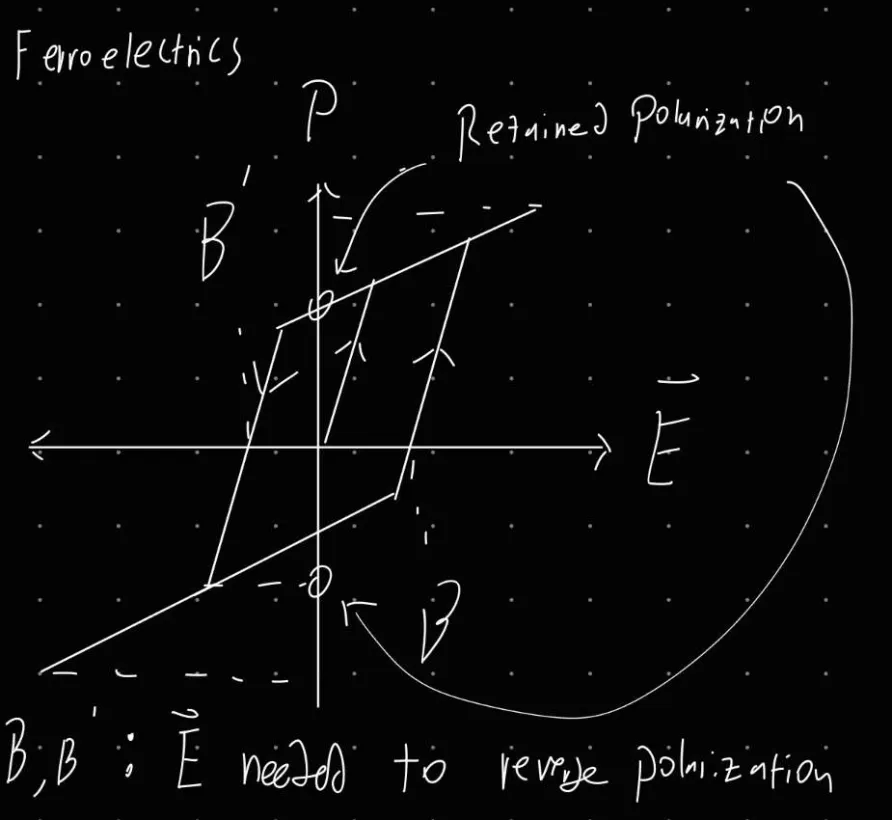 Ferroelectrics
P
Retained Polarization
B'
E
B
B, B' : E needed to reverse polarization